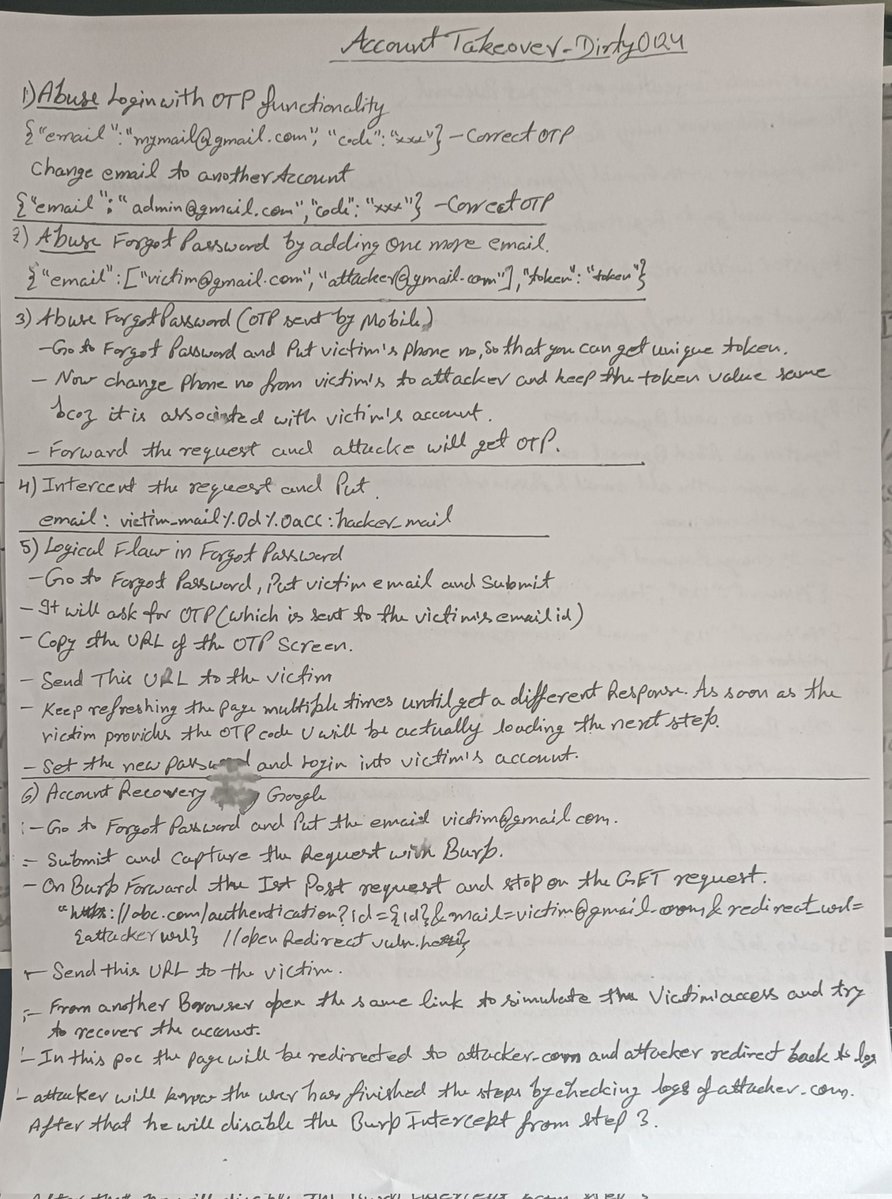 Account Takeover - Dirty0124
1) Abuse Login with OTP functionality
{"email":"mymail@gmail.com", "code":"xxx"} - Correct OTP
Change email to another Account
{"email":"admin@gmail.com","code":"xxx"} - Correct OTP
2) Abuse Forgot Password by adding one more email.
{"email":["victim@gmail.com","attacker@gmail.com"],"token":"token"}
3) Abuse Forgot Password (OTP sent by Mobile)
- Go to Forgot Password and Put victim's phone no, So that you can get unique token.
- Now change Phone no from victim's to attacker and keep the token value same
bcoz it is associated with victim's account.
- Forward the request and attacke will get OTP.
4) Intercent the request and Put
email: victim_mail%0d%0acc:hacker_mail
5) Logical Flaw in Forgot Password
- Go to Forgot Password, Put victim email and Submit
- It will ask for OTP (which is sent to the victim's email id)
- Copy the URL of the OTP Screen.
- Send This URL to the victim
- Keep refreshing the page multiple times until get a different Response. As soon as the
victim provides the OTP code U will be actually loading the next step.
- Set the new and login into victim's account.
6) Account Recovery Google
- Go to Forgot Password and Put the email victim@gmail.com.
- Submit and Capture the Request with Burp.
- On Burp Forward the Ist Post request and stop on the GET request.
://abc.com/authentication?id={id}&mail=victim@gmail.com&redirect_url=
{attacker url} //open Redirect vuln.
- Send this URL to the victim.
- From another Borowser open the same link to simulate the Victim'access and try
to recover the account.
- In this poc the page will be redirected to attacker.com and attacker redirect back to
- attacker will know the user has finished the steps by checking logs of attacker.com.
After that he will disable the Burp Intercept from step 3.